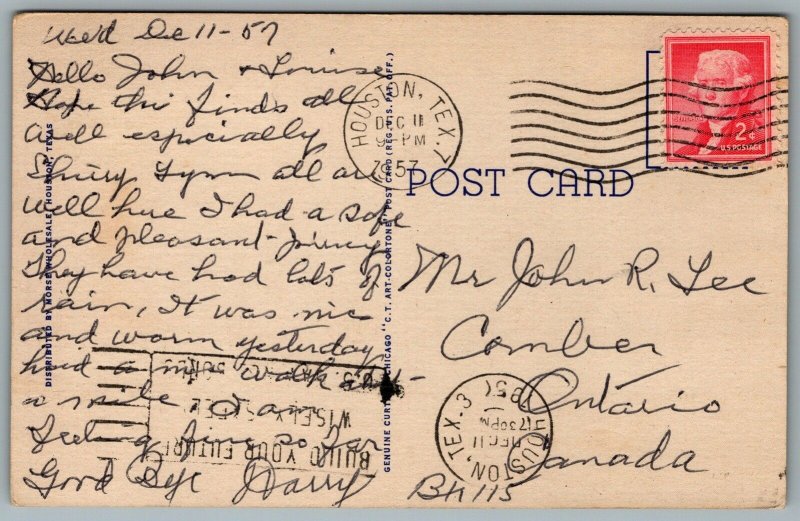 Wed Dec 11-57
Hello John & Louise
Hope this finds all
well especially
Shirley Lynn all are
well here I had a safe
and pleasant journey
They have had lots of
rain, It was nice
and warm yesterday
had a nice walk about
a mile I am
feeling fine so far
Good Bye Harry
DISTRIBUTED BY MORSE WHOLESALE, HOUSTON, TEXAS
GENUINE CURTEICH-CHICAGO "C.T. ART-COLORTONE" POST CARD (REG. U.S. PAT. OFF.)
HOUSTON, TEX. 7
DEC 11
PM
1957
2¢
U.S. POSTAGE
POST CARD
Mr John R. Lee
Comber
Ontario
Canada
HOUSTON, TEX. 3
DEC 11
730PM
1957
BUILD YOUR FUTURE
WISELY
BONDS
BH115